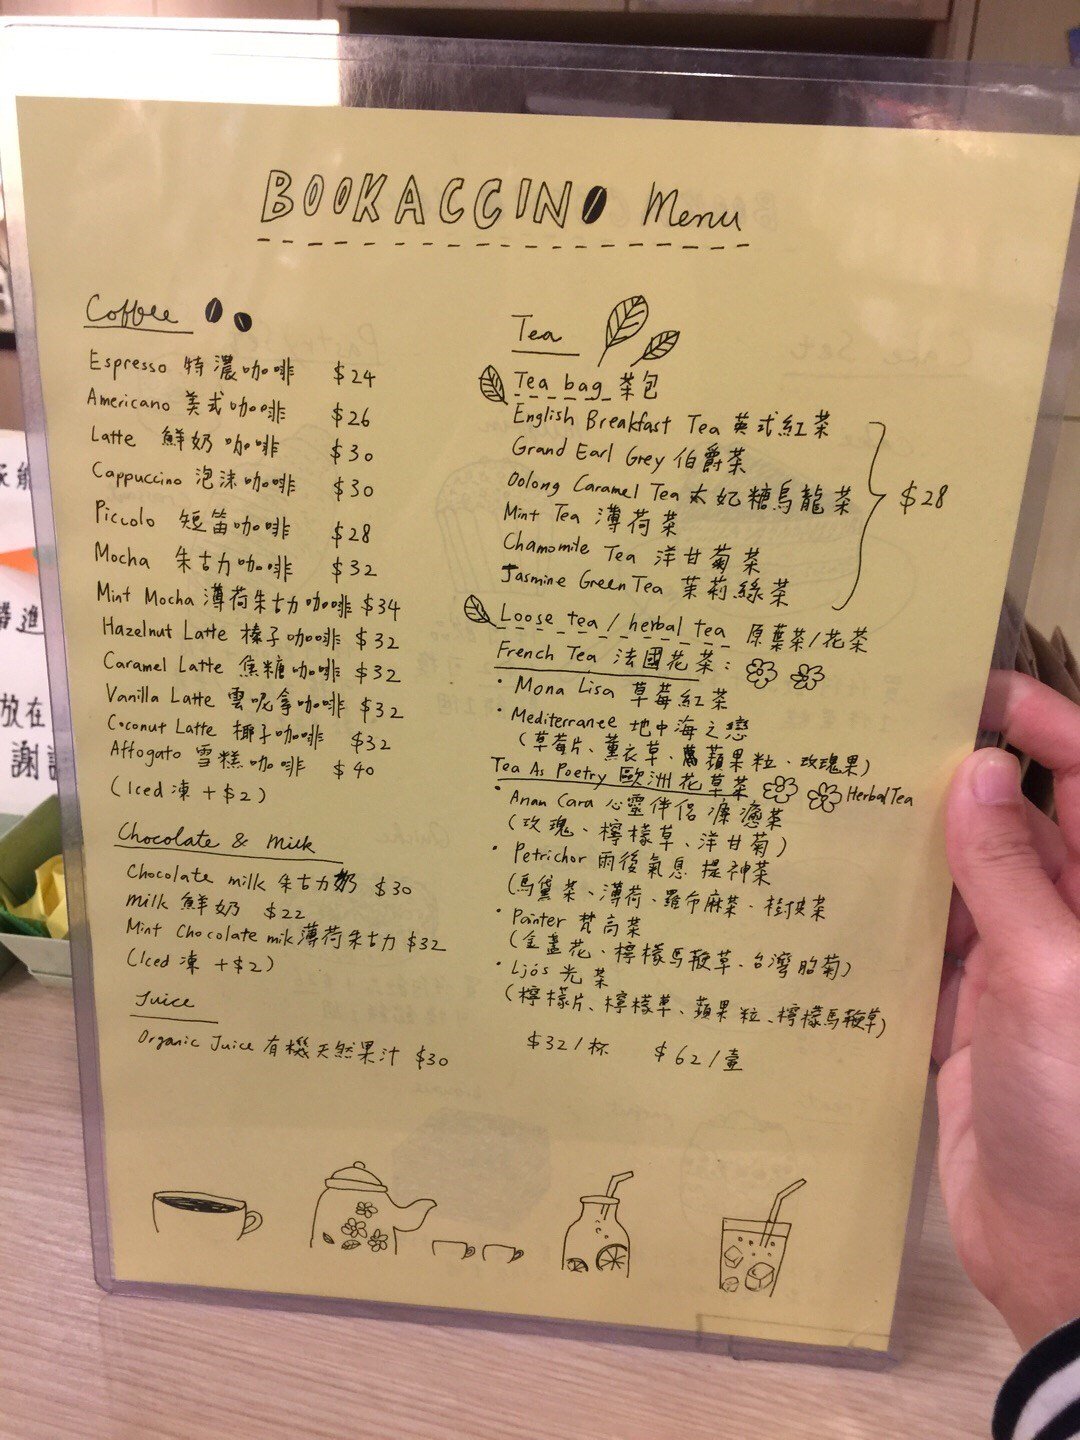 BOOKACCINO Menu
Coffee
Espresso 特濃咖啡 $24
Americano 美式咖啡 $26
Latte 鮮奶咖啡 $30
Cappuccino 泡沫咖啡 $30
Piccolo 短笛咖啡 $28
Mocha 朱古力咖啡 $32
Mint Mocha 薄荷朱古力咖啡 $34
Hazelnut Latte 榛子咖啡 $32
Caramel Latte 焦糖咖啡 $32
Vanilla Latte 雲呢拿咖啡 $32
Coconut Latte 椰子咖啡 $32
Affogato 雪糕咖啡 $40
(Iced 凍 +$2)
Chocolate & Milk
Chocolate milk 朱古力奶 $30
milk 鮮奶 $22
Mint Chocolate milk 薄荷朱古力 $32
(Iced 凍 +$2)
Juice
Organic Juice 有機天然果汁 $30
Tea
Tea bag 茶包
English Breakfast Tea 英式紅茶
Grand Earl Grey 伯爵茶
Oolong Caramel Tea 太妃糖烏龍茶
Mint Tea 薄荷茶
Chamomile Tea 洋甘菊茶
Jasmine Green Tea 茉莉綠茶
$28
Loose tea / herbal tea 原葉茶/花茶
French Tea 法國花茶:
· Mona Lisa 草莓紅茶
· Mediterranee 地中海之戀
(草莓片、薰衣草、蘋果粒、玫瑰果)
Tea As Poetry 歐洲花草茶 Herbal Tea
· Anam Cara 心靈伴侶 茶
(玫瑰、檸檬草、洋甘菊)
· Petrichor 雨後氣息 提神茶
(馬黛茶、薄荷、羅布麻茶、茶
· Painter 梵高茶
(金盞花、檸檬馬鞭草、台灣胎菊)
· Ljós 光茶
(檸檬片、檸檬草、蘋果粒、檸檬馬鞭草)
$32/杯 $62/壺
放在